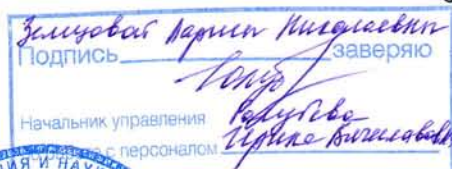 Земцовой Ларисы Николаевны
Подпись заверяю
Начальник управления
с персоналом Ирина Вячеславовна
ИЯ И НАУ